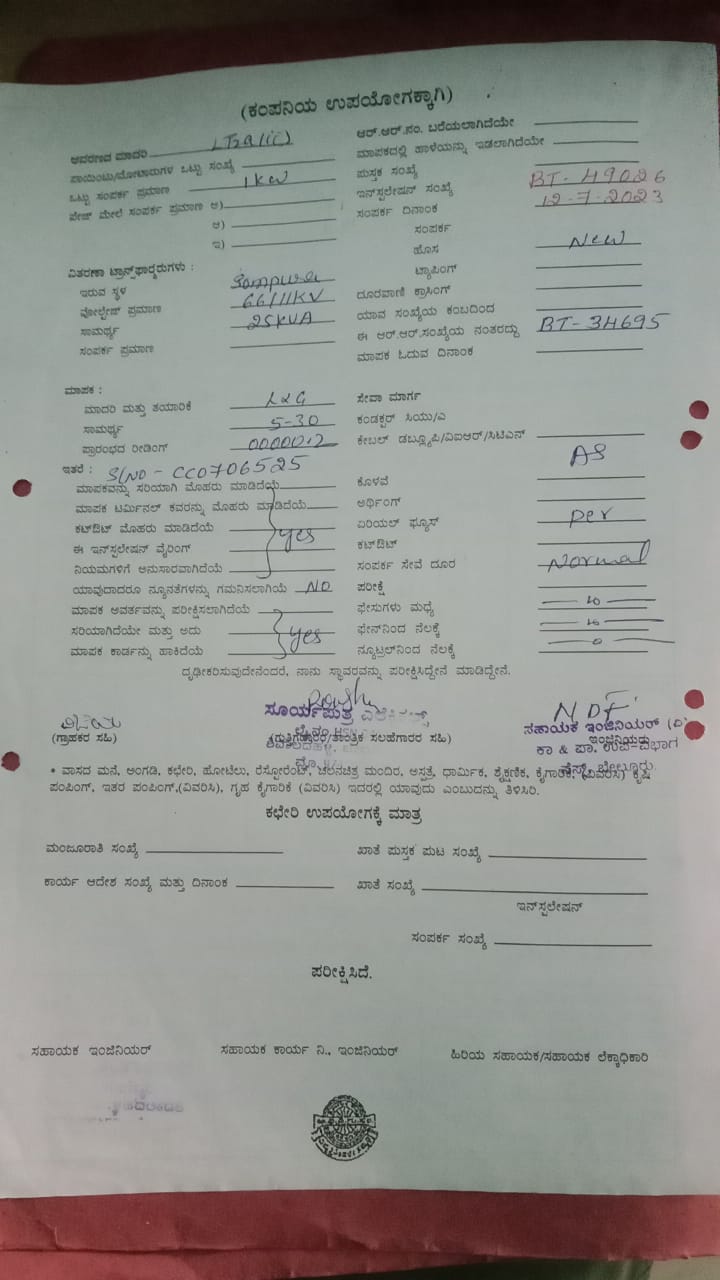 (ಕಂಪನಿಯ ಉಪಯೋಗಕ್ಕಾಗಿ)
ಆವರಣದ ಮಾದರಿ
ಪಾಯಿಂಟು/ಮೋಟಾರುಗಳ ಒಟ್ಟು ಸಂಖ್ಯೆ
ಒಟ್ಟು ಸಂಪರ್ಕ ಪ್ರಮಾಣ 1KW
ಫೇಜ್ ಮೇಲೆ ಸಂಪರ್ಕ ಪ್ರಮಾಣ ಅ)
ಆ)
ಇ)
ವಿತರಣಾ ಟ್ರಾನ್ಸ್‌ಫಾರ್‍ಮರುಗಳು :
ಇರುವ ಸ್ಥಳ Sompura
ವೋಲ್ಟೇಜ್ ಪ್ರಮಾಣ 66/11KV
ಸಾಮರ್ಥ್ಯ 25KVA
ಸಂಪರ್ಕ ಪ್ರಮಾಣ
ಆರ್.ಆರ್.ನಂ. ಬರೆಯಲಾಗಿದೆಯೇ
ಮಾಪಕದಲ್ಲಿ ಹಾಳೆಯನ್ನು ಇಡಲಾಗಿದೆಯೇ
ಪುಸ್ತಕ ಸಂಖ್ಯೆ
ಇನ್ಸ್‌ಲೇಷನ್ ಸಂಖ್ಯೆ BT-49026
ಸಂಪರ್ಕ ದಿನಾಂಕ 12-7-2023
ಸಂಪರ್ಕ
ಹೊಸ New
ಟ್ಯಾಪಿಂಗ್
ದೂರವಾಣಿ ಕ್ರಾಸಿಂಗ್
ಯಾವ ಸಂಖ್ಯೆಯ ಕಂಬದಿಂದ
ಈ ಆರ್.ಆರ್.ಸಂಖ್ಯೆಯ ನಂತರದ್ದು BT-34695
ಮಾಪಕ ಓದುವ ದಿನಾಂಕ
ಮಾಪಕ :
ಮಾದರಿ ಮತ್ತು ತಯಾರಿಕೆ L&G
ಸಾಮರ್ಥ್ಯ 5-30
ಪ್ರಾರಂಭದ ರೀಡಿಂಗ್
ಇತರೆ : S/NO - CC0706525
ಮಾಪಕವನ್ನು ಸರಿಯಾಗಿ ಮೊಹರು ಮಾಡಿದೆಯೆ
ಮಾಪಕ ಟರ್ಮಿನಲ್ ಕವರನ್ನು ಮೊಹರು ಮಾಡಿದೆಯೆ
ಕಟ್‌ಔಟ್ ಮೊಹರು ಮಾಡಿದೆಯೆ
ಈ ಇನ್‌ಸ್ಪಲೇಷನ್ ವೈರಿಂಗ್ yes
ನಿಯಮಗಳಿಗೆ ಅನುಸಾರವಾಗಿದೆಯೆ
ಯಾವುದಾದರೂ ನ್ಯೂನತೆಗಳನ್ನು ಗಮನಿಸಲಾಗಿಯೆ NO
ಮಾಪಕ ಅವರ್ತವನ್ನು ಪರೀಕ್ಷಿಸಲಾಗಿದೆಯೆ
ಸರಿಯಾಗಿದೆಯೇ ಮತ್ತು ಅದು yes
ಮಾಪಕ ಕಾರ್ಡನ್ನು ಹಾಕಿದೆಯೆ
ಸೇವಾ ಮಾರ್ಗ
ಕಂಡಕ್ಟರ್ ಸಿಯು/ಎ
ಕೇಬಲ್ ಡಬ್ಲ್ಯೂಪಿ/ವಿಐಆರ್/ಸಿಟಿಎಸ್
ಕೊಳವೆ AS
ಅರ್ಥಿಂಗ್
ಏರಿಯಲ್ ಫ್ಯೂಸ್ per
ಕಟ್‌ಔಟ್
ಸಂಪರ್ಕ ಸೇವೆ ದೂರ Normal
ಪರೀಕ್ಷೆ
ಫೇಸುಗಳು ಮಧ್ಯೆ
ಫೇಸ್‌ನಿಂದ ನೆಲಕ್ಕೆ
ನ್ಯೂಟ್ರಲ್‌ನಿಂದ ನೆಲಕ್ಕೆ
ದೃಢೀಕರಿಸುವುದೇನೆಂದರೆ, ನಾನು ಸ್ಥಾವರವನ್ನು ಪರೀಕ್ಷಿಸಿದ್ದೇನೆ ಮಾಡಿದ್ದೇನೆ.
ಸೂರ್ಯಪುತ್ರ
(ಗ್ರಾಹಕರ ಸಹಿ)
(ಗುತ್ತಿಗೆದಾರರ/ತಾಂತ್ರಿಕ ಸಲಹೆಗಾರರ ಸಹಿ)
ಸಹಾಯಕ ಇಂಜಿನಿಯರ್ (ವಿ)
ಇಂಜಿನಿಯರು
ಕಾ & ಪಾ. ಉಪ-ವಿಭಾಗ
ಬೇಲೂರು.
• ವಾಸದ ಮನೆ, ಅಂಗಡಿ, ಕಛೇರಿ, ಹೋಟೆಲು, ರೆಸ್ಟೋರೆಂಟ್, ಚಲನಚಿತ್ರ ಮಂದಿರ, ಆಸ್ಪತ್ರೆ, ಧಾರ್ಮಿಕ, ಶೈಕ್ಷಣಿಕ, ಕೈಗಾರಿಕೆ, (ವಿವರಿಸಿ) ಕೃಷಿ
ಪಂಪಿಂಗ್, ಇತರ ಪಂಪಿಂಗ್,(ವಿವರಿಸಿ), ಗೃಹ ಕೈಗಾರಿಕೆ (ವಿವರಿಸಿ) ಇದರಲ್ಲಿ ಯಾವುದು ಎಂಬುದನ್ನು ತಿಳಿಸಿರಿ.
ಕಛೇರಿ ಉಪಯೋಗಕ್ಕೆ ಮಾತ್ರ
ಮಂಜೂರಾತಿ ಸಂಖ್ಯೆ
ಖಾತೆ ಪುಸ್ತಕ ಪುಟ ಸಂಖ್ಯೆ
ಕಾರ್ಯ ಆದೇಶ ಸಂಖ್ಯೆ ಮತ್ತು ದಿನಾಂಕ
ಖಾತೆ ಸಂಖ್ಯೆ
ಇನ್‌ಸ್ಪಲೇಷನ್
ಸಂಪರ್ಕ ಸಂಖ್ಯೆ
ಪರೀಕ್ಷಿಸಿದೆ.
ಸಹಾಯಕ ಇಂಜಿನಿಯರ್
ಸಹಾಯಕ ಕಾರ್ಯ ನಿ., ಇಂಜಿನಿಯರ್
ಹಿರಿಯ ಸಹಾಯಕ/ಸಹಾಯಕ ಲೆಕ್ಕಾಧಿಕಾರಿ